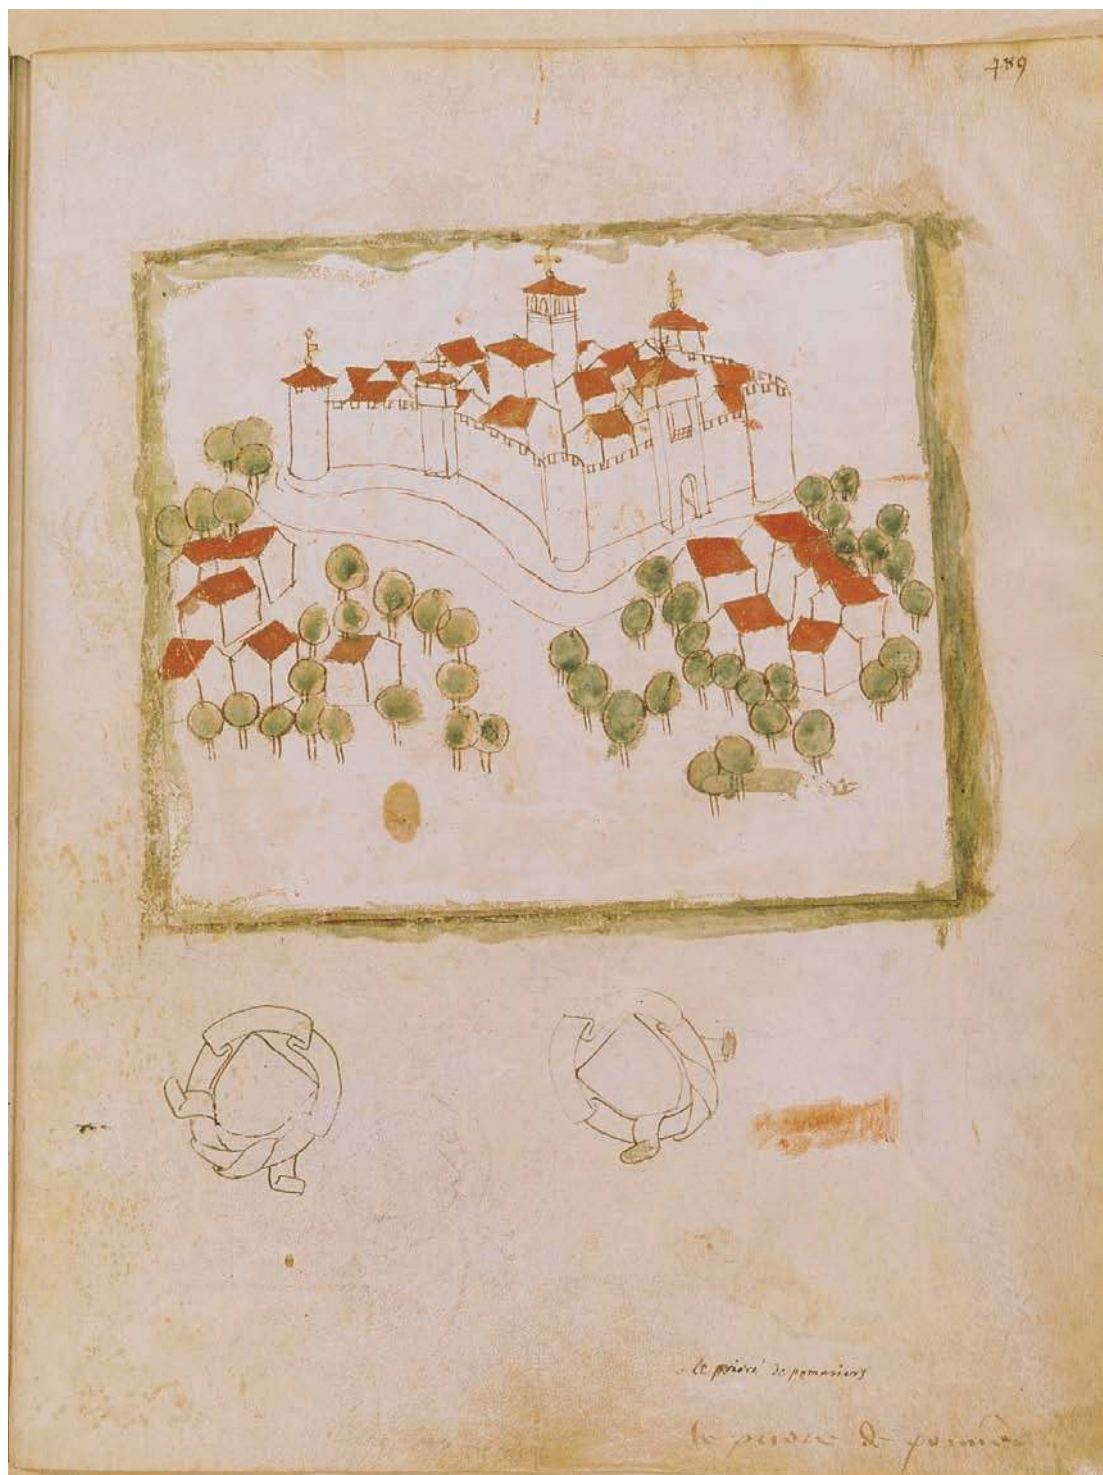 489
le prioré de pomeriers
le priore de pommie